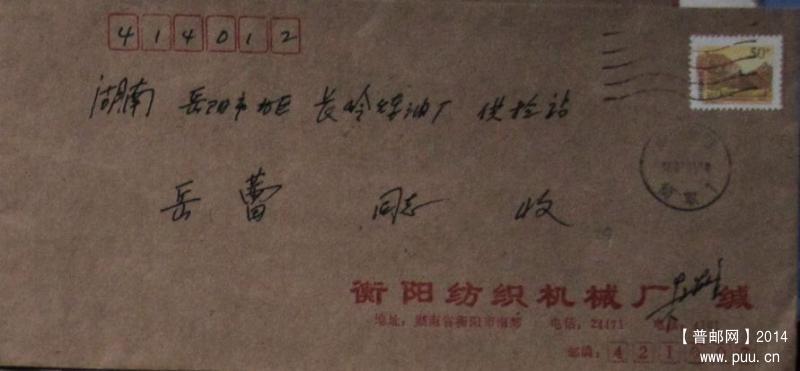 414012
50
湖南 岳阳市 长岭炼油厂 供检站
岳蕾 同志 收
衡阳纺织机械厂 缄
地址：湖南省衡阳市 电话：22471
邮编：421
【普邮网】2014
www.puu.cn